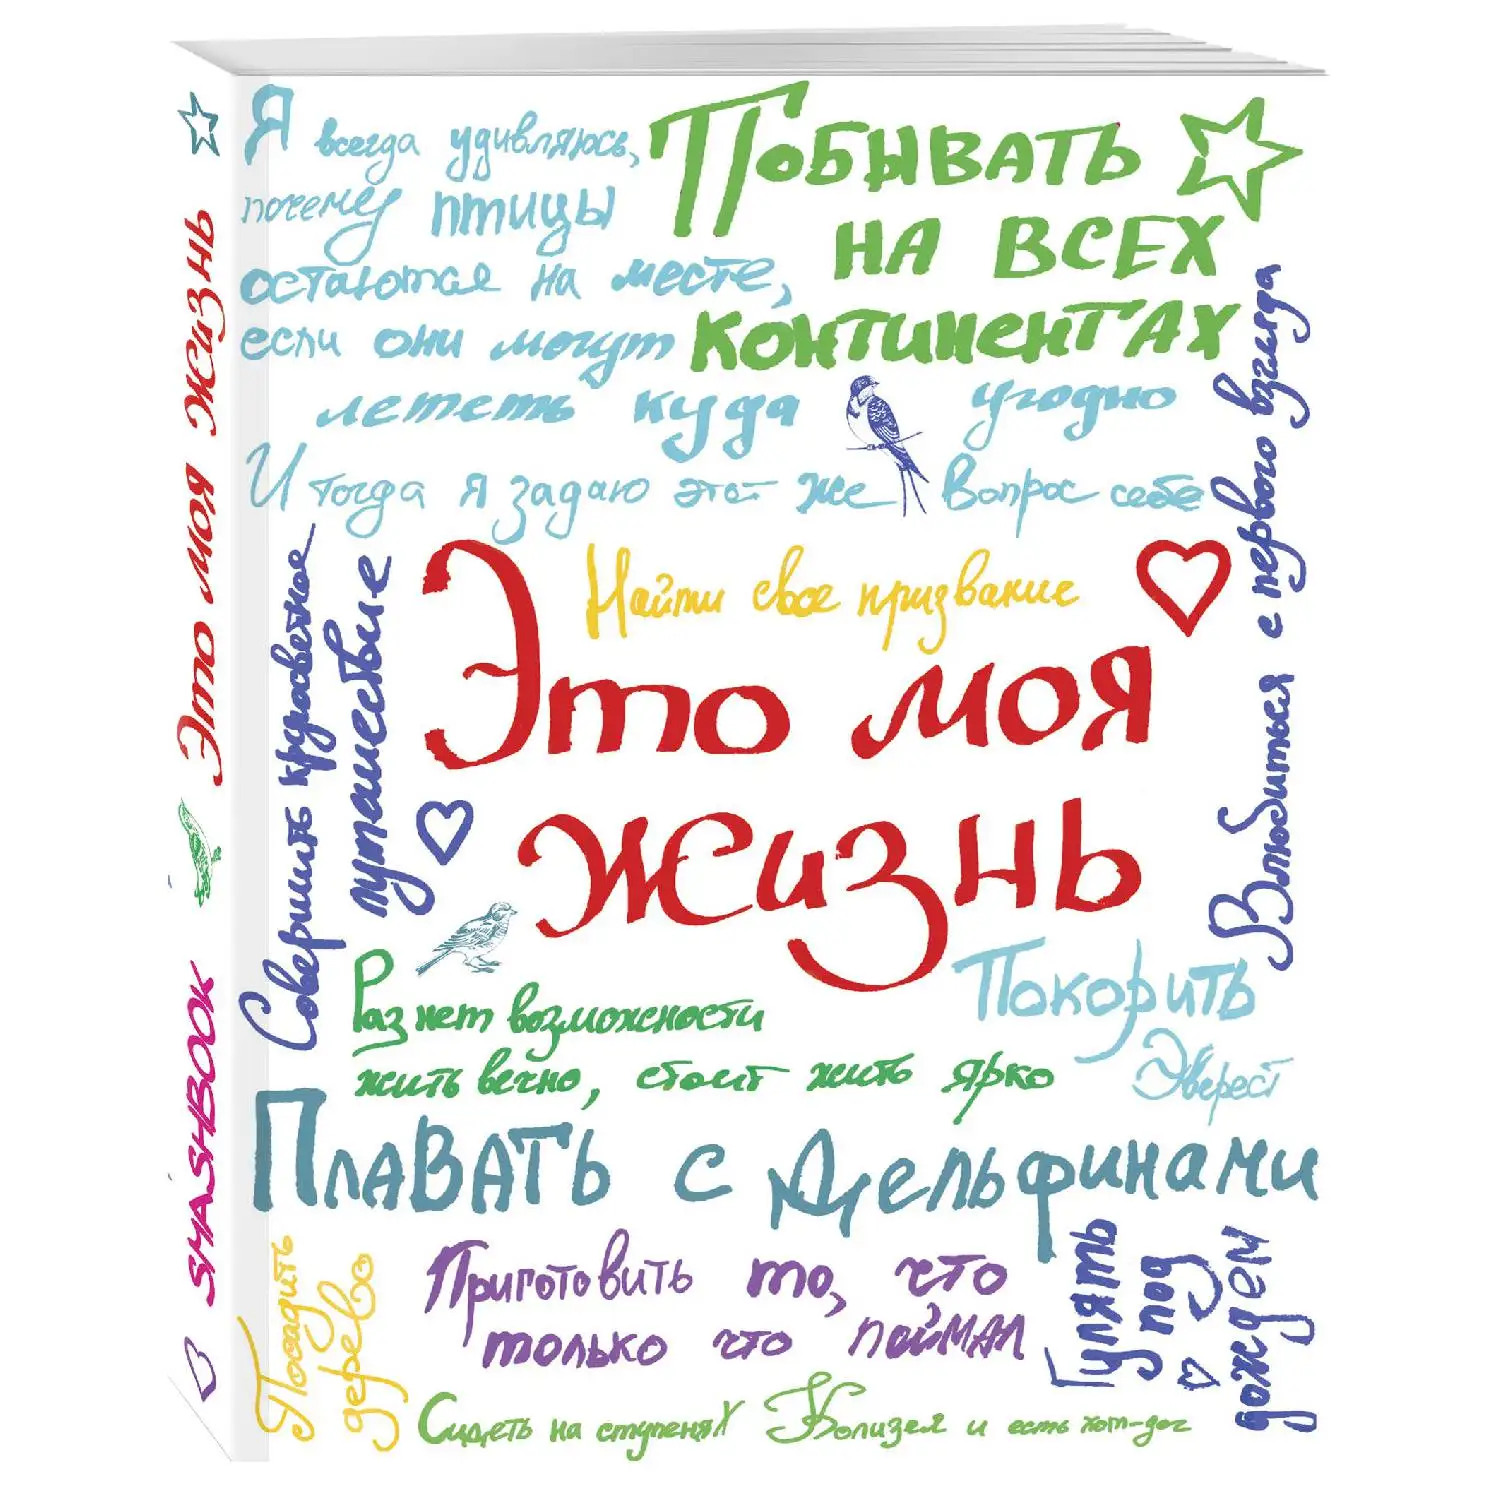 Я всегда удивляюсь,
почему птицы
остаются на месте,
если они могут
лететь куда угодно
И тогда я задаю этот же вопрос себе
Побывать
на всех
континентах
Влюбиться с первого взгляда
Найти свое призвание
Совершить кругосветное
путешествие
Это моя
жизнь
Раз нет возможности
жить вечно, стоит жить ярко
Покорить
Эверест
Плавать с дельфинами
Посадить
дерево
Приготовить то, что
только что поймал
Гулять
под
дождем
Сидеть на ступенях Колизея и есть хот-дог
Это моя жизнь
SMASHBOOK